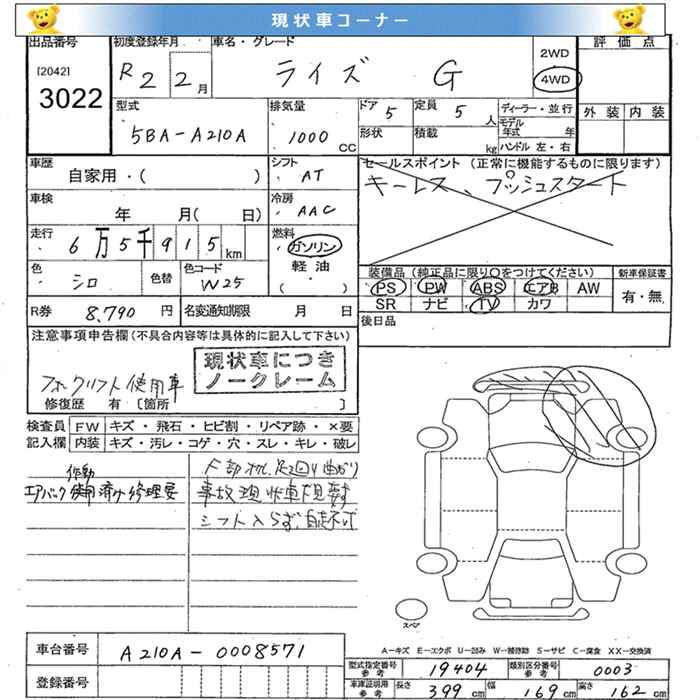 現状車コーナー
出品番号 初度登録年月 車名・グレード 評価点
[2042]
3022
R2 年 2月 ライズ G
2WD
4WD
外装 内装
型式 排気量 ドア 5 定員 5人 ディーラー・並行
5BA-A210A 1000cc
モデル年式 年
形状 積載 kg ハンドル 左・右
車歴 シフト セールスポイント (正常に機能するものに限ります)
自家用・( ) AT
キーレス、プッシュスタート
車検 冷房
年 月( 日) AAC
走行 6万5千915km
燃料 ガソリン
軽油・
( )
色 シロ 色替 色コード W25
装備品 (純正品に限り○をつけてください) 新車保証書
PS PW ABS エアB AW
SR ナビ TV カワ
有・無
R券 8,790円 名変通知期限 月 日
後日品
注意事項申告欄 (不具合内容等は具体的に記入して下さい)
現状車につき
ノークレーム
フォークリフト使用車
修復歴 有〔箇所 〕
検査員 FW キズ・飛石・ヒビ割・リペア跡・×要
記入欄 内装 キズ・汚レ・コゲ・穴・スレ・キレ・破レ
作動
エアバック使用済み修理要
F部オレ、足廻り曲がり
事故現状車下見要す
シフト入らず、自走不可
スペア
A―キズ E―エクボ U―凹み W―補修跡 S―サビ C―腐食 XX―交換済
車台番号 A210A-0008571
登録番号
型式指定番号 参考 19404 類別区分番号 参考 0003
車庫証明用 参考 長さ 399cm 幅 169cm 高さ 162cm